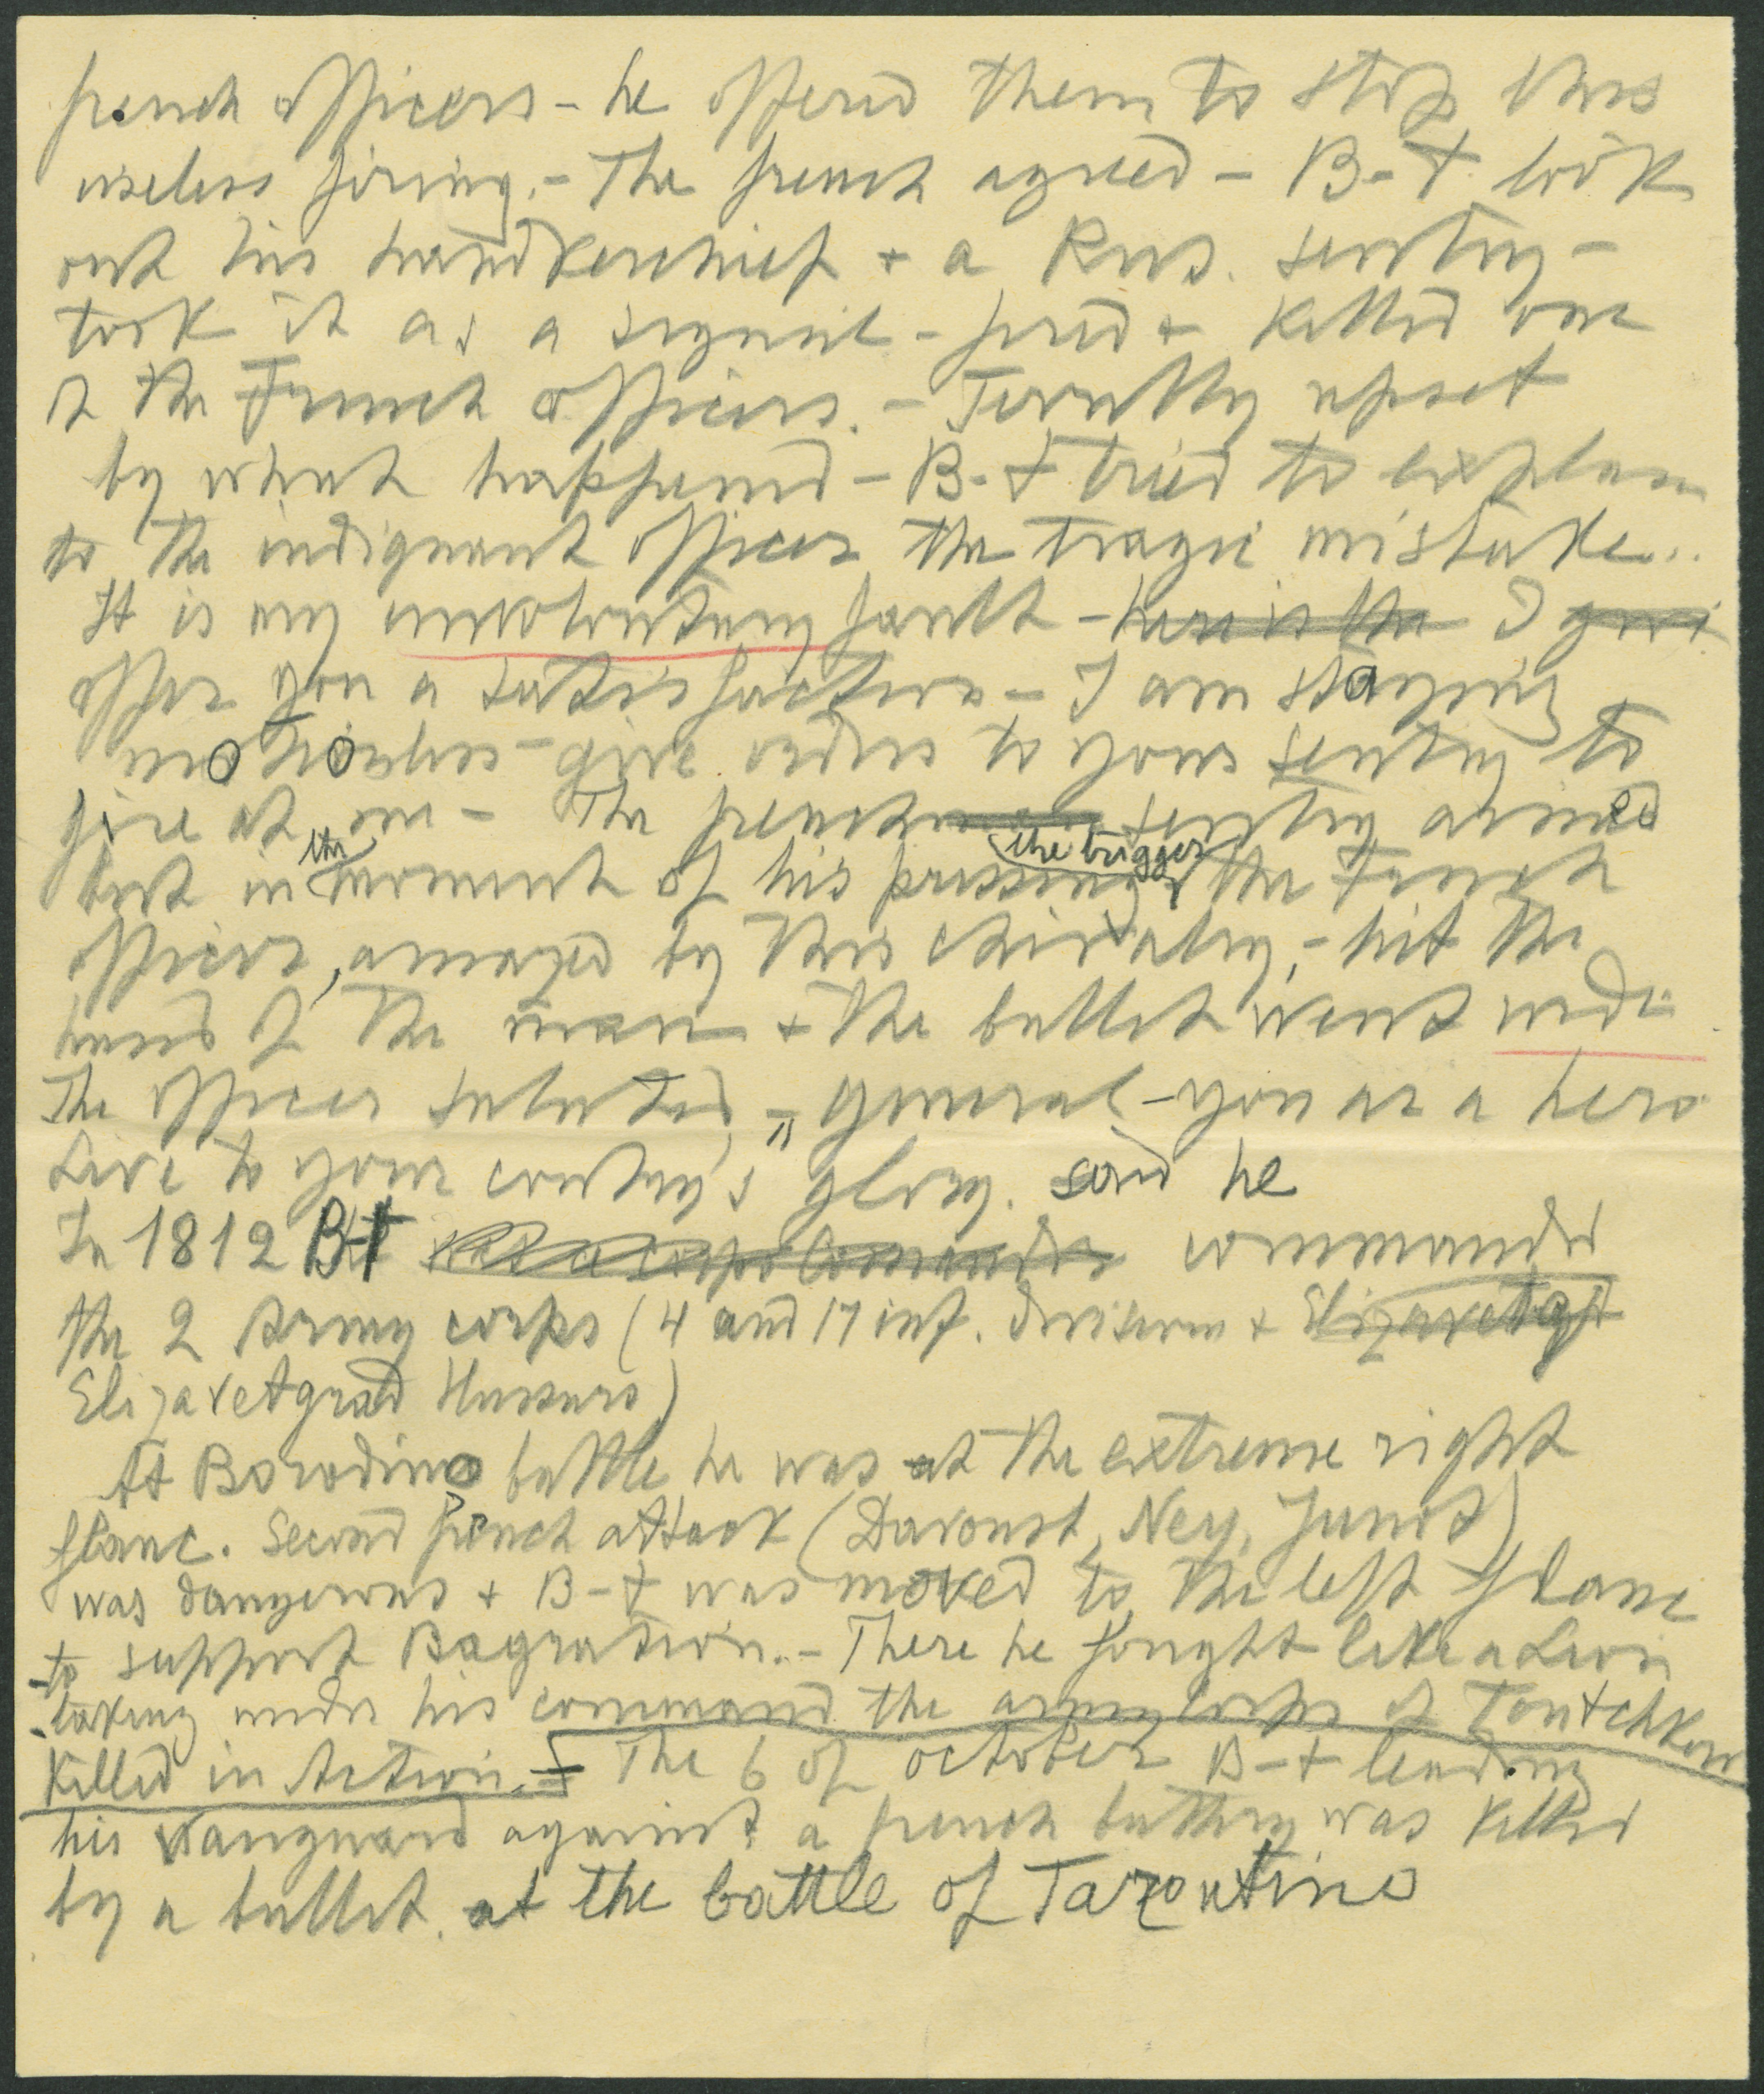 french officers - he offered them to stop this
useless firing. - The french agreed - B-t took
out his handkerchief + a Rus. sentry -
took it as a signal - fired + killed one
of the French officers. - Terribly upset
by what happened - B-t tried to explain
to the indignant officer the tragic mistake...
It is my unvoluntary fault - here is the I give
offer you a satisfaction - I am staying
motionless - give orders to your sentry to
fire at me - The french sentry aimed
but in the moment of his pressing the trigger the French
officer, amazed by this chivalry, - hit the
hand of the man + the bullet went wide
The officer saluted - " General - you are a hero
Live to your country's glory. said he
In 1812 B-t was a corps commander commanded
the 2 Army corps (4 and 17 inf. division + Elizavetgr
Elizavetgrad Hussars)
At Borodino battle he was at the extreme right
flanc. Second french attack (Davoust, Ney, Junot)
was dangerous + B-t was moved to the left flanc
to support Bagration. - There he fought like a Lion
taking under his command the army corps of Toutchkow
killed in Action. - The 6 of october B-t leading
his vanguard against a french battery was killed
by a bullet. at the battle of Taroutino